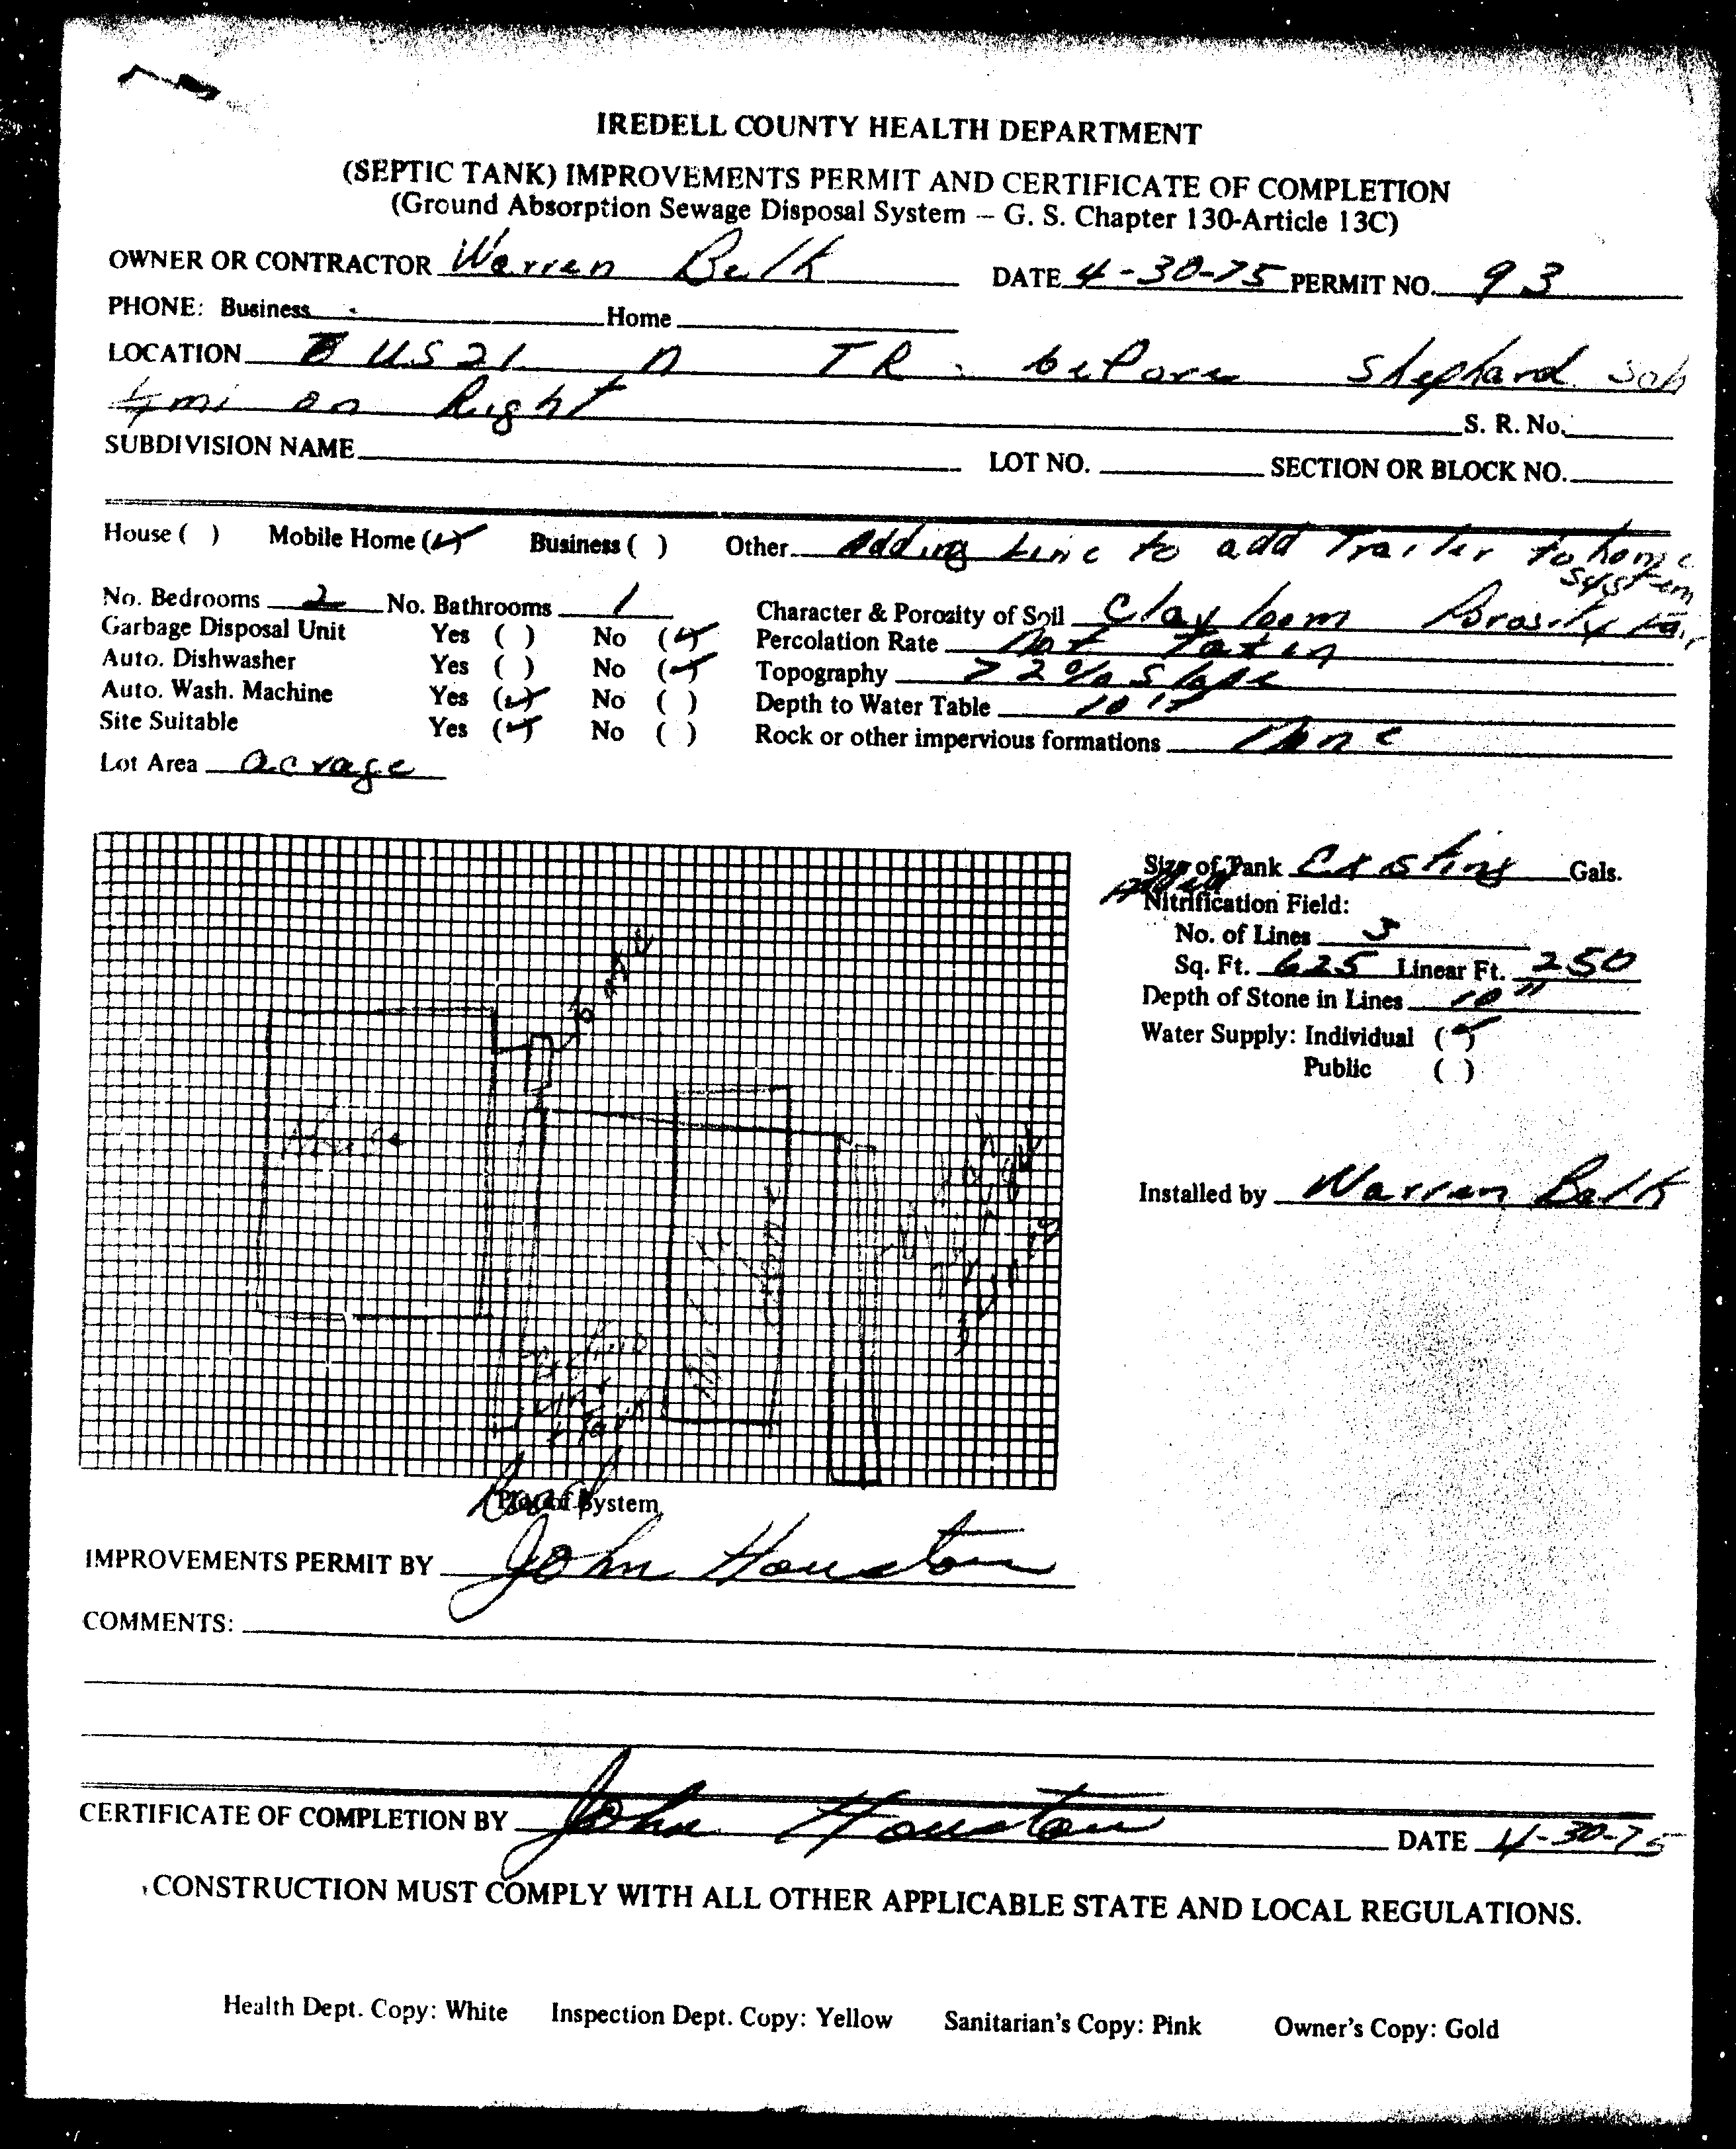 IREDELL COUNTY HEALTH DEPARTMENT
(SEPTIC TANK) IMPROVEMENTS PERMIT AND CERTIFICATE OF COMPLETION
(Ground Absorption Sewage Disposal System – G. S. Chapter 130-Article 13C)
OWNER OR CONTRACTOR Warren Belk DATE 4-30-75 PERMIT NO. 93
PHONE: Business Home
LOCATION US 21 n TR. before Shephard Sch
mi on Right S. R. No.
SUBDIVISION NAME LOT NO. SECTION OR BLOCK NO.
House ( ) Mobile Home (✓) Business ( ) Other Adding Line to add Trailer to home
system
No. Bedrooms 2 No. Bathrooms 1 Character & Porosity of Soil Clay loam Porosity Fair
Garbage Disposal Unit Yes ( ) No (✓) Percolation Rate Not Taken
Auto. Dishwasher Yes ( ) No (✓) Topography > 2% Slope
Auto. Wash. Machine Yes (✓) No ( ) Depth to Water Table 10'+
Site Suitable Yes (✓) No ( ) Rock or other impervious formations None
Lot Area acrage
Size of Tank Existing Gals.
Added
Nitrification Field:
No. of Lines 3
Sq. Ft. 625 Linear Ft. 250
Depth of Stone in Lines 10"
Water Supply: Individual (✓)
Public ( )
House
Installed by Warren Belk
Tank
Road
Plot of System
IMPROVEMENTS PERMIT BY John Houston
COMMENTS:
CERTIFICATE OF COMPLETION BY John Houston DATE 4-30-75
CONSTRUCTION MUST COMPLY WITH ALL OTHER APPLICABLE STATE AND LOCAL REGULATIONS.
Health Dept. Copy: White Inspection Dept. Copy: Yellow Sanitarian's Copy: Pink Owner's Copy: Gold